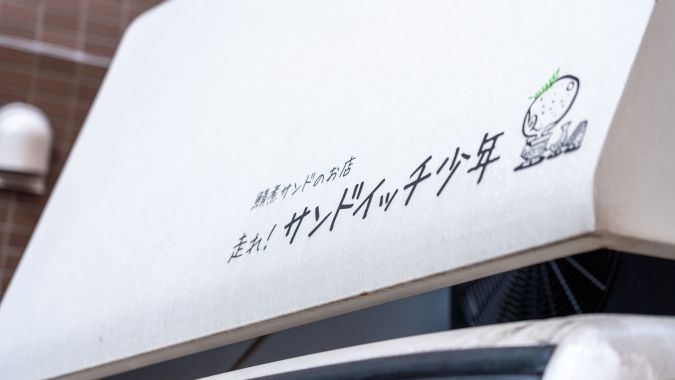 鯖煮サンドのお店
走れ！サンドイッチ少年